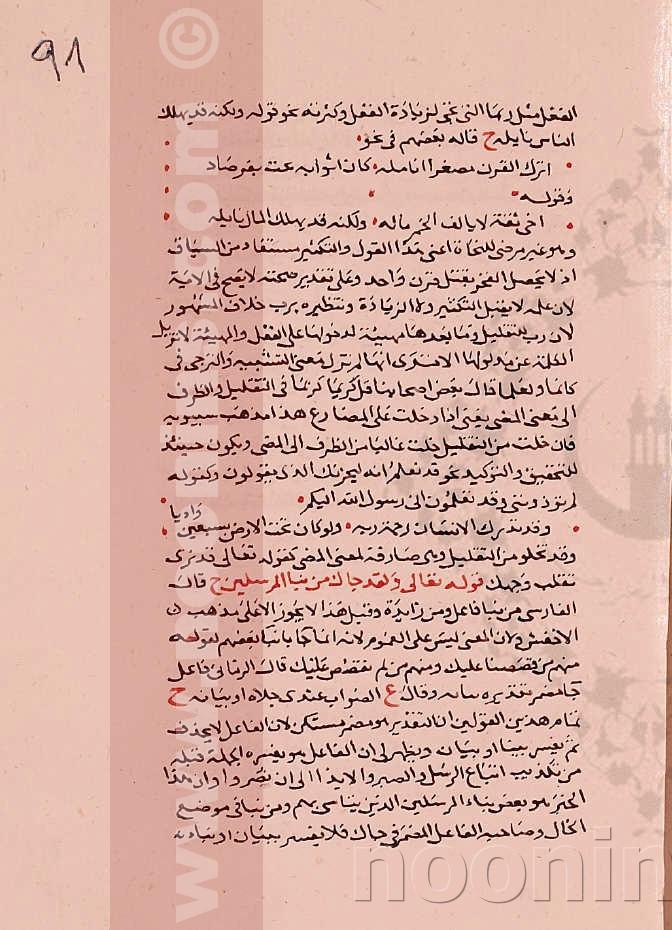 ٩١
الفعل مثل ربما التى تجئ لزيادة الفعل وكثرته نحو قوله ولكنه قد يهلك
الناس نايله ح قاله بعضهم فى نحو
اترك القرن مصفرا انامله كان اثوابه مجت بفرصاد
وقوله
اخى ثقة لا يتلف الخمر ماله ولكنه قد يهلك المال نايله
وهو غير مرضى للنحاة اعنى هذا القول والتكثير مستفاد من السياق
اذ لا يحصل الفخر بقتل قرن واحد وعلى تقدير صحته لا يصح فى الاية
لان علمه لا يقبل التكثير ولا الزيادة وتنظيره برب خلاف المشهور
لان رب للتقليل وما بعدها مهيئة لدخولها على الفعل والمهيئة لا تزيل
الكلمة عن مدلولها الا ترى انها لم تزل معنى التشبيه والترجى فى
كانما ولعلما قال بعض اصحابنا قد كربما فى التقليل والصرف
الى معنى المضى يعنى اذا دخلت على المضارع هذا مذهب سيبويه
فان خلت من التقليل خلت غالبا من الصرف الى المضى ويكون حينئذ
للتحقيق والتوكيد نحو قد نعلم انه ليحزنك الذى يقولون وكقوله
لم تؤذوننى وقد تعلمون انى رسول الله اليكم
وقد تدرك الانسان رحمة ربه ولو كان تحت الارض سبعين واديا
وقد تخلو من التقليل وهى صارفة لمعنى المضى كقوله تعالى قد نرى
تقلب وجهك قوله تعالى ولقد جاك من نبا المرسلين ح قال
الفارسى من نبا فاعل ومن زايدة وقيل هذا لا يجوز الا على مذهب
الاخفش ولان المعنى ليس على العموم لانه انما جا بانبا بعضهم لقوله
منهم من قصصنا عليك ومنهم من لم نقصص عليك قال الرمانى فاعل
جا مضمر تقديره نبا وقال ع الصواب عندى جلاء او بيان ح
تمام هذين القولين ان التقدير هو مضمر مستكن لان الفاعل لا يحذف
ثم يفسر بنبا او بيان ويظهر لى ان الفاعل هو يفسره الجملة قبله
من تكذيب اتباع الرسل والصبر والايذا الى ان نصروا وان هذا
الخبر هو بعض نباء المرسلين الذين يتاسى بهم ومن نبا فى موضع
الحال وصاحبه الفاعل المضمر فى جاك فلا يفسر ببيان او نباء
www.noonin.com ©
noonin